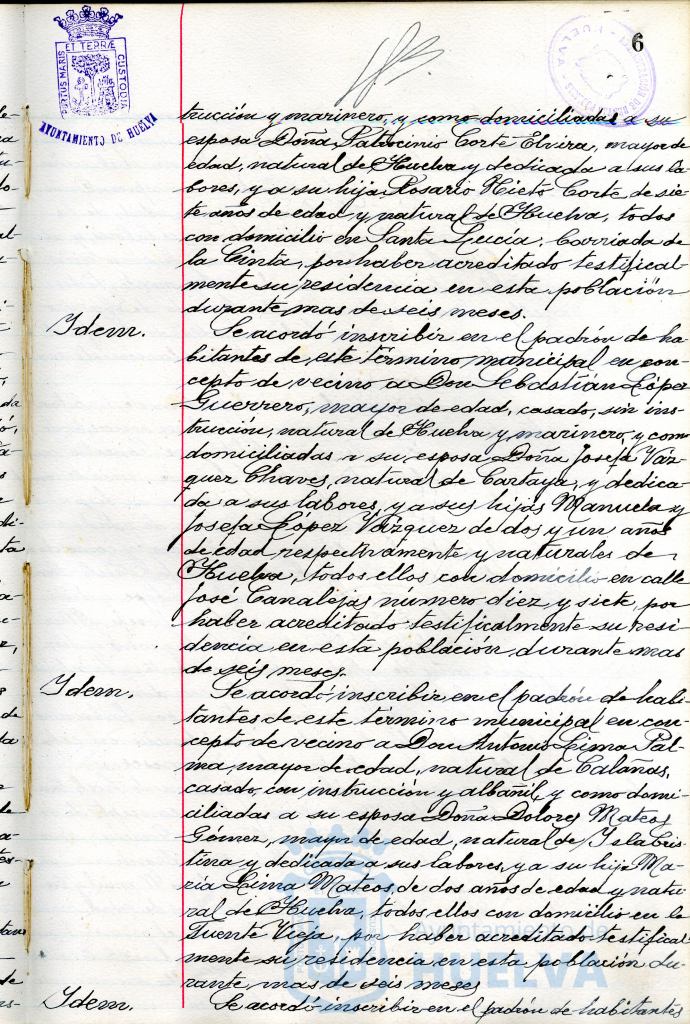 6
PORTUS MARIS ET TERRÆ CUSTODIA
AYUNTAMIENTO DE HUELVA
HUELVA
trucción y marinero, y como domiciliadas a su
esposa Doña Patrocinio Corte Elvira, mayor de
edad, natural de Huelva y dedicada a sus la-
bores, y a su hija Rosario Nieto Corte de sie-
te años de edad y natural de Huelva, todos
con domicilio en Santa Lucía, barriada de
la Cinta, por haber acreditado testifical-
mente su residencia en esta población
durante mas de seis meses.
Idem.
Se acordó inscribir en el padrón de ha-
bitantes de este término municipal en con-
cepto de vecino a Don Sebastián López
Guerrero, mayor de edad, casado, sin ins-
trucción, natural de Huelva y marinero, y como
domiciliadas a su esposa Doña Josefa Váz-
quez Chaves, natural de Cartaya, y dedica-
da a sus labores, y a sus hijas Manuela y
Josefa López Vázquez de dos y un años
de edad respectivamente y naturales de
Huelva, todos ellos con domicilio en calle
José Canalejas número diez y siete, por
haber acreditado testificalmente su resi-
dencia en esta población durante mas
de seis meses.
Idem.
Se acordó inscribir en el padrón de habi-
tantes de este término municipal en con-
cepto de vecino a Don Antonio Lima Pal-
ma, mayor de edad, natural de Calañas,
casado, con instrucción y albañil, y como domi-
ciliadas a su esposa Doña Dolores Mateos
Gómez, mayor de edad, natural de Isla Cris-
tina y dedicada a sus labores, y a su hija Ma-
ría Lima Mateos, de dos años de edad y natu-
ral de Huelva, todos ellos con domicilio en la
Fuente Vieja, por haber acreditado testifical-
mente su residencia en esta población du-
rante mas de seis meses
Ayuntamiento de
HUELVA
Idem.
Se acordó inscribir en el padrón de habitantes